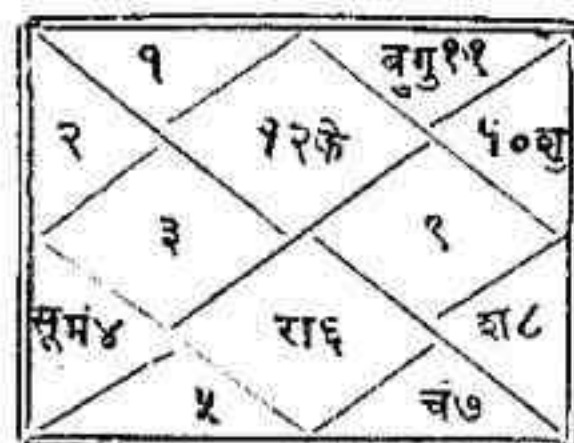 १
बुगु११
२
१२के
१०शु
३
९
सूमं४
रा६
श८
५
चं७